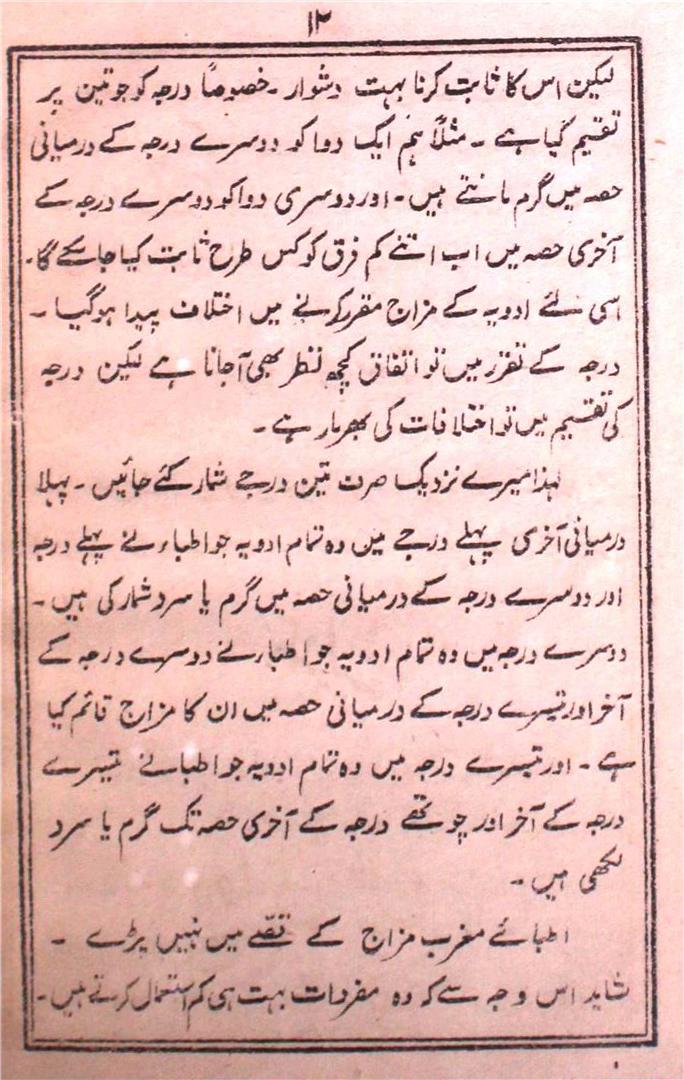 ۱۲
لیکن اس کا ثابت کرنا بہت دشوار ۔ خصوصاً درجہ کو جو تین پر
تقسیم کیا ہے ۔ مثلاً ہم ایک دوا کو دوسرے درجہ کے درمیانی
حصہ میں گرم مانتے ہیں ۔ اور دوسری دوا کو دوسرے درجہ کے
آخری حصہ میں اب اتنے کم فرق کو کس طرح ثابت کیا جا سکے گا ۔
اسی لئے ادویہ کے مزاج مقرر کرنے میں اختلاف پیدا ہوگیا ۔
درجہ کے تقرر میں تو اتفاق کچھ نظر بھی آجاتا ہے لیکن درجہ
کی تقسیم میں تو اختلافات کی بھرمار ہے ۔
لہذا میرے نزدیک صرف تین درجے شمار کئے جائیں ۔ پہلا
درمیانی آخری پہلے درجے میں وہ تمام ادویہ جو اطباء نے پہلے درجہ
اور دوسرے درجہ کے درمیانی حصہ میں گرم یا سرد شمار کی ہیں ۔
دوسرے درجہ میں وہ تمام ادویہ جو اطباء نے دوسرے درجہ کے
آخر اور تیسرے درجہ کے درمیانی حصہ میں ان کا مزاج قائم کیا
ہے ۔ اور تیسرے درجہ میں وہ تمام ادویہ جو اطبا نے تیسرے
درجہ کے آخر اور چوتھے درجہ کے آخری حصہ تک گرم یا سرد
لکھی ہیں ۔
اطبائے مغرب مزاج کے قصّے میں نہیں پڑے ۔
شاید اس وجہ سے کہ وہ مفردات بہت ہی کم استعمال کرتے ہیں ۔